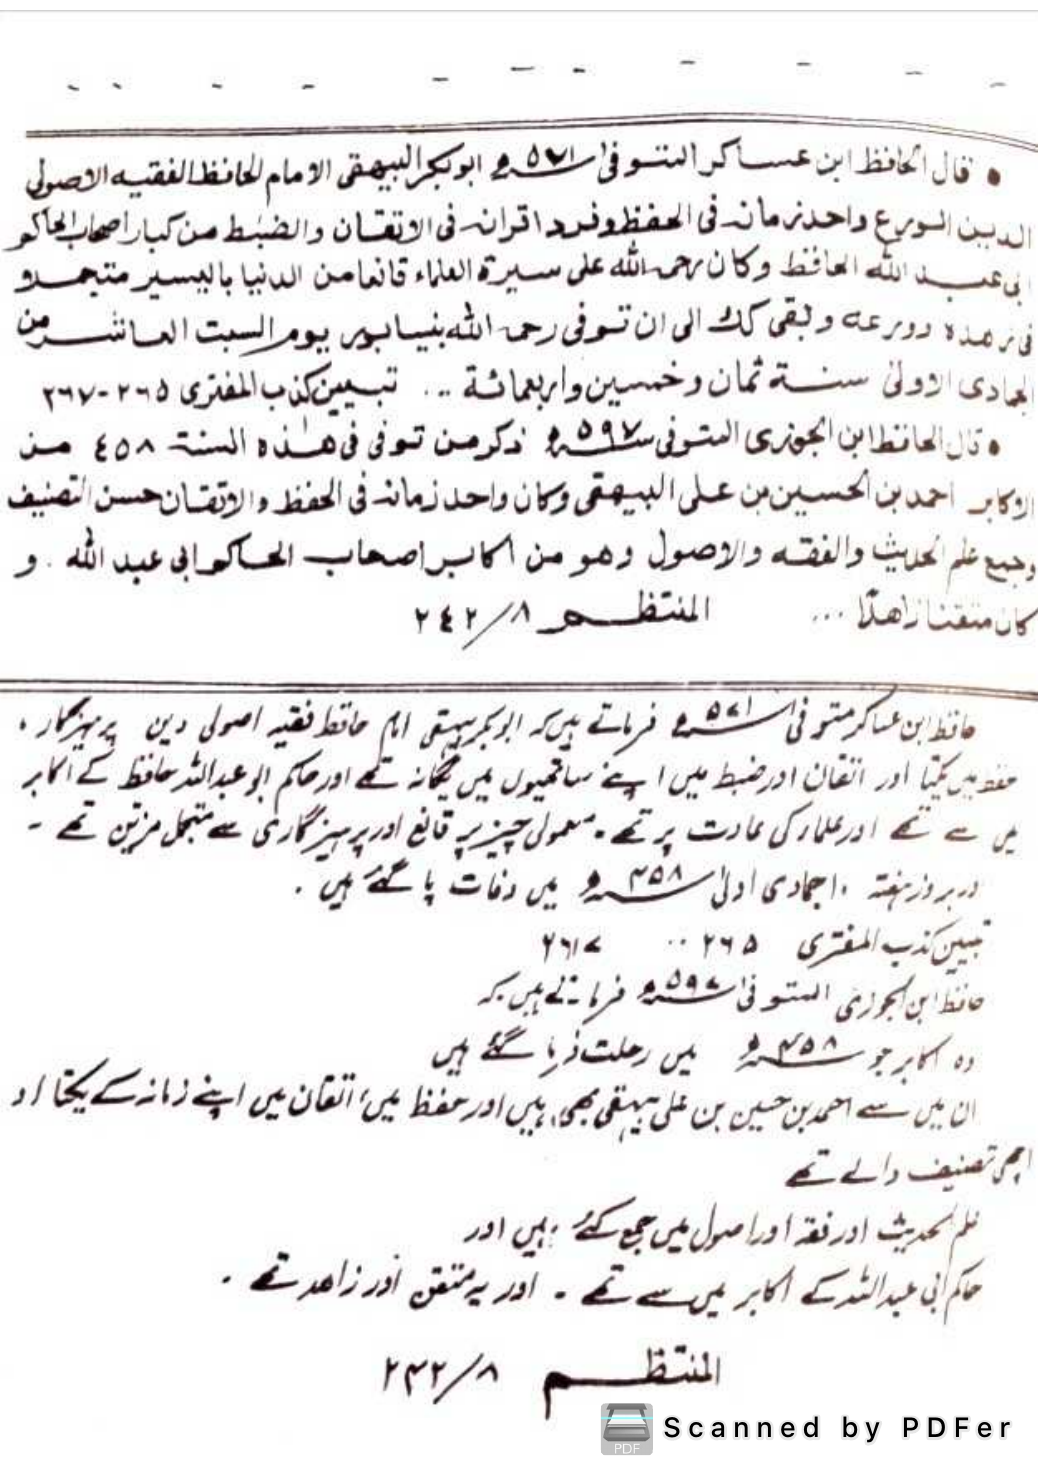 • قال الحافظ ابن عساكر المتوفى سنة ٥٧١ھ ابوبكر البيهقى الامام الحافظ الفقيه الاصولى
الدين الورع واحد زمانه فى الحفظ وفرد اقرانه فى الاتقان والضبط من كبار اصحاب الحاكم
ابى عبد الله الحافظ وكان رحمه الله على سيرة العلماء قانعا من الدنيا باليسير متجملا
فى زهده وورعه وبقى كذلك الى ان توفى رحمه الله بنيسابور يوم السبت العاشر من
الجمادى الاولى سنة ثمان وخمسين واربعمائة ... تبيين كذب المفترى ٢٦٥-٢٦٧
• قال الحافظ ابن الجوزى المتوفى سنة ٥٩٧ھ ذكر من توفى فى هذه السنة ٤٥٨ من
الاكابر احمد بن الحسين بن على البيهقى وكان واحد زمانه فى الحفظ والاتقان حسن التصنيف
وجمع علم الحديث والفقه والاصول وهو من اكابر اصحاب الحاكم ابى عبد الله . و
كان متقنا زاهدًا ... المنتظم ٨/٢٤٢
حافظ ابن عساکر متوفی سنہ ۵۷۱ھ فرماتے ہیں کہ ابوبکر بیہقی امام حافظ فقیہ اصولی دین پرہیزگار ،
حفظ میں یکتا اور اتقان اور ضبط میں اپنے ساتھیوں میں یگانہ تھے اور حاکم ابو عبداللہ حافظ کے اکابر
میں سے تھے اور علماء کی عادت پر تھے ۔ معمولی چیز پر قانع اور پرہیزگاری سے متجمل مزین تھے ۔
اور بروز ہفتہ ۱۰ جمادی اولیٰ سنہ ۴۵۸ھ میں وفات پا گئے ہیں .
تبیین کذب المفتری ۲۶۵ .. ۲۶۷
حافظ ابن الجوزی المتوفی سنہ ۵۹۷ھ فرماتے ہیں کہ
وہ اکابر جو سنہ ۴۵۸ھ میں رحلت فرما گئے ہیں
ان میں سے احمد بن حسین بن علی بیہقی بھی ہیں اور حفظ میں، اتقان میں اپنے زمانہ کے یکتا او
اچھی تصنیف والے تھے
علم الحدیث اور فقہ اور اصول میں جمع کئے ہیں اور
حاکم ابی عبداللہ کے اکابر میں سے تھے ۔ اور یہ متقن اور زاھد تھے .
المنتظم ۸/۲۴۲
Scanned by PDFer
PDF